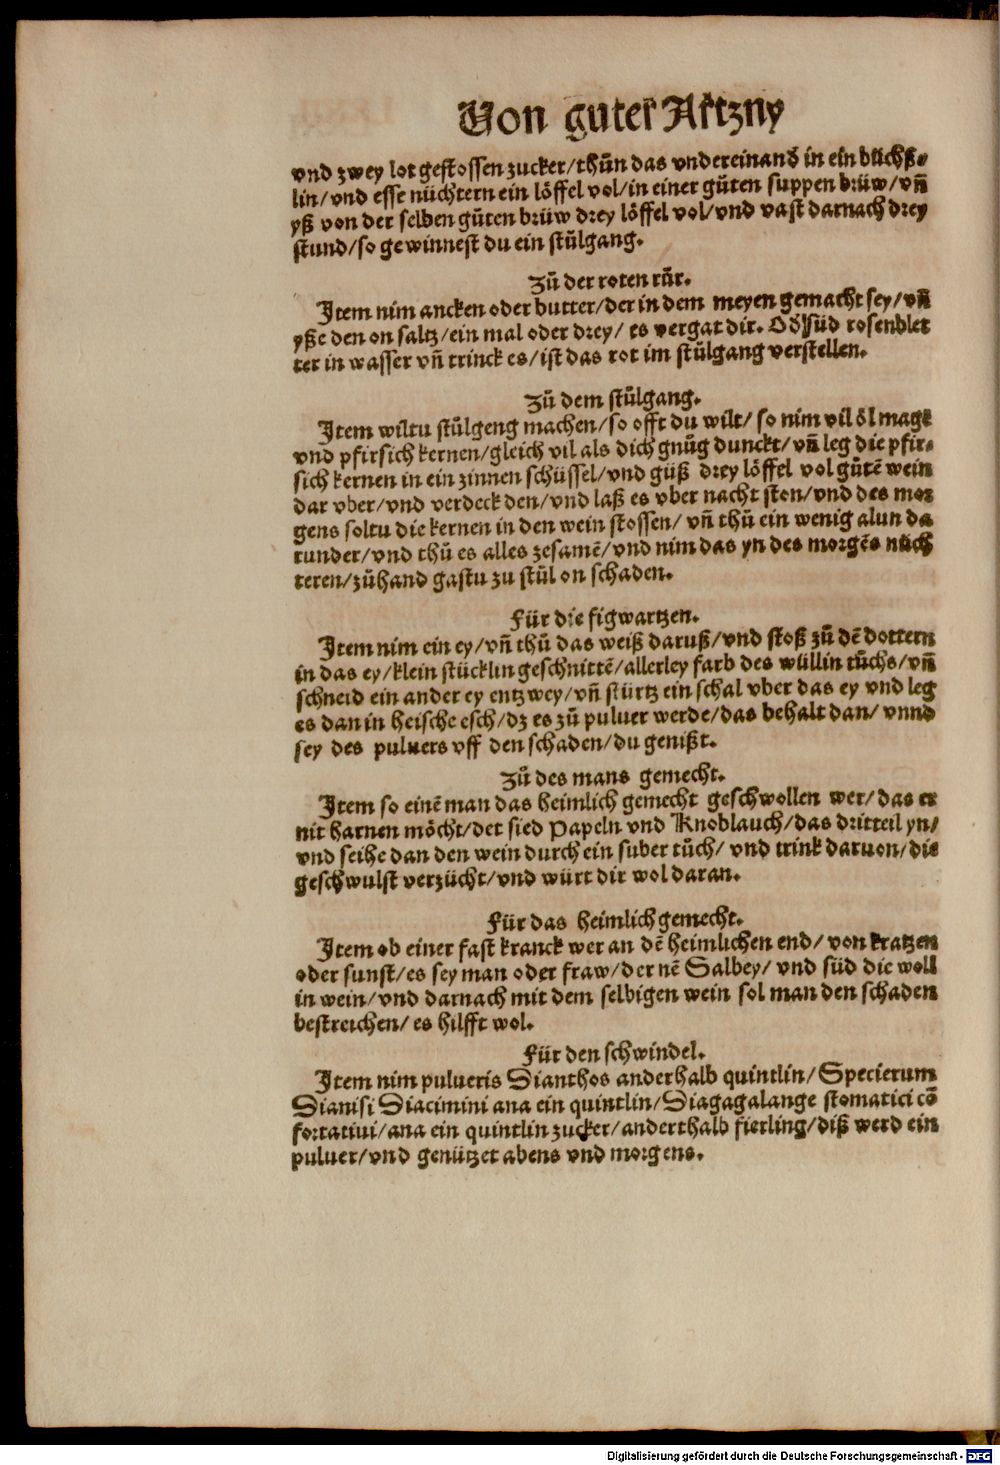 Von guter Artzny
vnd zwey lot gestossen zucker/thůn das vndereinand̄ in ein bůchß⸗
lin/vnd esse nüchtern ein löffel vol/in einer gůten suppen brüw/vñ
yß von der selben gůten brüw drey löffel vol/vnd vast darnach drey
stund/so gewinnest du ein stůlgang.
Zů der roten růr.
Item nim ancken oder butter/der in dem meyen gemacht sey/vñ
yße den on saltz/ein mal oder drey/ es vergat dir. Od̄ süd rosenblet
ter in wasser vñ trinck es/ist das rot im stůlgang verstellen.
Zů dem stůlgang.
Item wiltu stůlgeng machen/so offt du wilt/ so nim vil öl magē
vnd pfirsich kernen/gleich vil als dich gnůg dunckt/vñ leg die pfir⸗
sich kernen in ein zinnen schüssel/vnd güß drey löffel vol gůtē wein
dar vber/vnd verdeck den/vnd laß es vber nacht ston/vnd des mor
gens soltu die kernen in den wein stossen/ vñ thů ein wenig alun da
runder/vnd thů es alles zesamē/vnd nim das yn des morgēs nůch
teren/zůhand gastu zu stůl on schaden.
Für die figwartzen.
Item nim ein ey/vñ thů das weiß daruß/vnd stoß zů dē dottern
in das ey/klein stücklin geschnittē/allerley farb des wüllin tůchs/vñ
schneid ein ander ey entzwey/vñ stürtz ein schal vber das ey vnd leg
es dan in heische esch/dz es zů puluer werde/das behalt dan/ vnnd
sey des puluers vff den schaden/du genißt.
Zů des mans gemecht.
Item so einē man das heimlich gemecht geschwollen wer/das er
nit harnen möcht/der sied Papeln vnd Knoblauch/das dritteil yn/
vnd seihe dan den wein durch ein suber tůch/ vnd trink daruon/die
geschwulst verzücht/vnd würt dir wol daran.
Für das heimlich gemecht.
Item ob einer fast kranck wer an dē heimlichen end/ von kratzen
oder sunst/es sey man oder fraw/der nē Salbey/ vnd süd die woll
in wein/vnd darnach mit dem selbigen wein sol man den schaden
bestreichen/ es hilfft wol.
Für den schwindel.
Item nim pulueris Dianthos anderhalb quintlin/Specierum
Dianisi Diacimini ana ein quintlin/Diagagalange stomatici cō
fortatiui/ana ein quintlin zucker/anderthalb fierling/diß werd ein
puluer/vnd genützet abens vnd morgens.
Digitalisierung gefördert durch die Deutsche Forschungsgemeinschaft - DFG